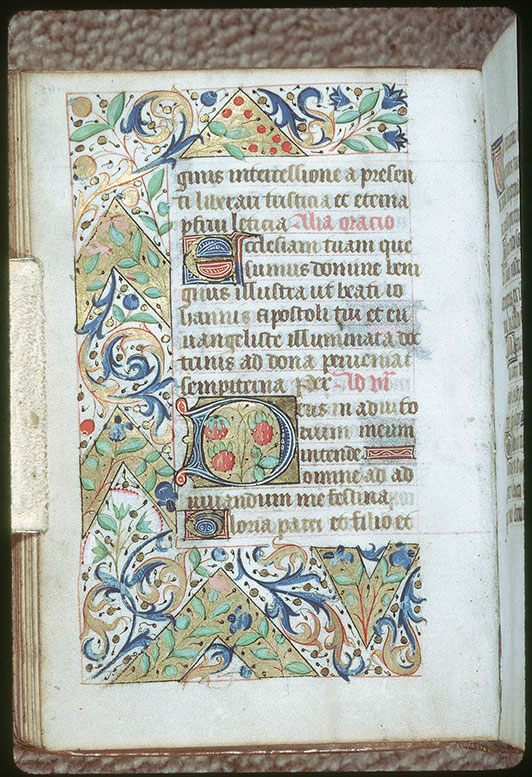 ginis intercessione a presen
ti liberari tristicia et eterna
pfrui leticia Alia oracio
Ecclesiam tuam que
sumus domine beni
gnus illustra ut beati io
hannis apostoli tui et eu
uangeliste illuminata doc
trinis ad dona perueniat
sempiterna Per
Deus in adiuto
rium meum
intende
Domine ad ad
iuuandum me festina
Gloria patri et filio et